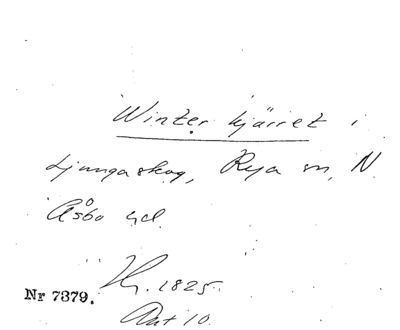 Winter kjärret i
Ljungaskog, Rya sn, N
Åsbo hd.
1825.
Nr 7379.
10